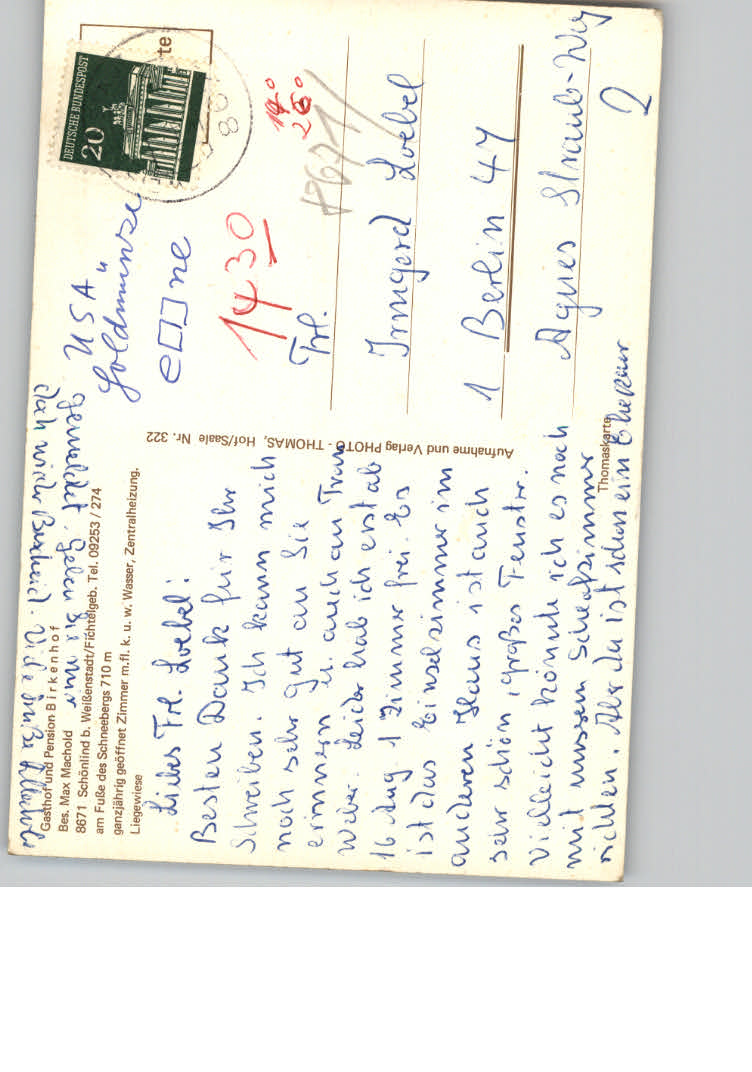 Gasthof und Pension Birkenhof
Bes. Max Machold
8671 Schönlind b. Weißenstadt/Fichtelgeb. Tel. 09253 / 274
am Fuße des Schneebergs 710 m
ganzjährig geöffnet Zimmer m.fl. k. u. w. Wasser, Zentralheizung.
Liegewiese
Liebes Frl. Loebel!
Besten Dank für Ihr
Schreiben. Ich kann mich
noch sehr gut an Sie
erinnern u. auch an Frau
Weber. Leider hab ich erst ab
16 Aug 1 Zimmer frei. Es
ist das Einzelzimmer im
anderen Haus ist auch
sehr schön, großes Fenster.
Vielleicht könnte ich es noch
mit unserem Schlafzimmer
richten. Aber da ist schon ein Ehepaar
gemeldet. Geben Sie mir
doch wieder Bescheid. Viele Grüße
Aufnahme und Verlag PHOTO - THOMAS, Hof/Saale Nr. 322
Thomaskarte
te
DEUTSCHE BUNDESPOST
20
USA
Goldmünze
1430
8671
Frl.
Irmgard Loebel
1 Berlin 47
Agnes Straub-Weg
2